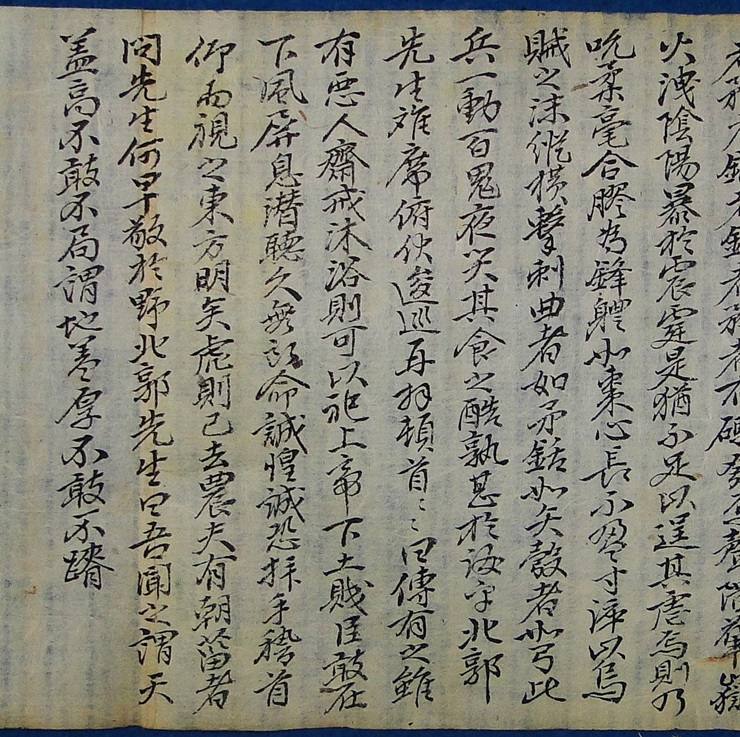 火洩陰陽暴於震霆是猶不足以逞其虐焉則乃
吮柔毫合膠为鋒軆如棗心長不盈寸淬以烏
賊之沫縱横擊刺曲者如矛銛如矢彀者如弓此
兵一動百鬼夜哭其食之酷孰甚於汝乎北郭
先生離席俯伏逡巡再拜頓首〻〻曰傳有之雖
有惡人齋戒沐浴則可以祀上帝下土賤臣敢在
下風屏息潜聽久無所命誠惶誠恐拜手稽首
仰而視之東方明矣虎則已去農夫有朝菑者
問先生何早敬於野北郭先生曰吾聞之謂天
盖高不敢不局謂地盖厚不敢不蹐